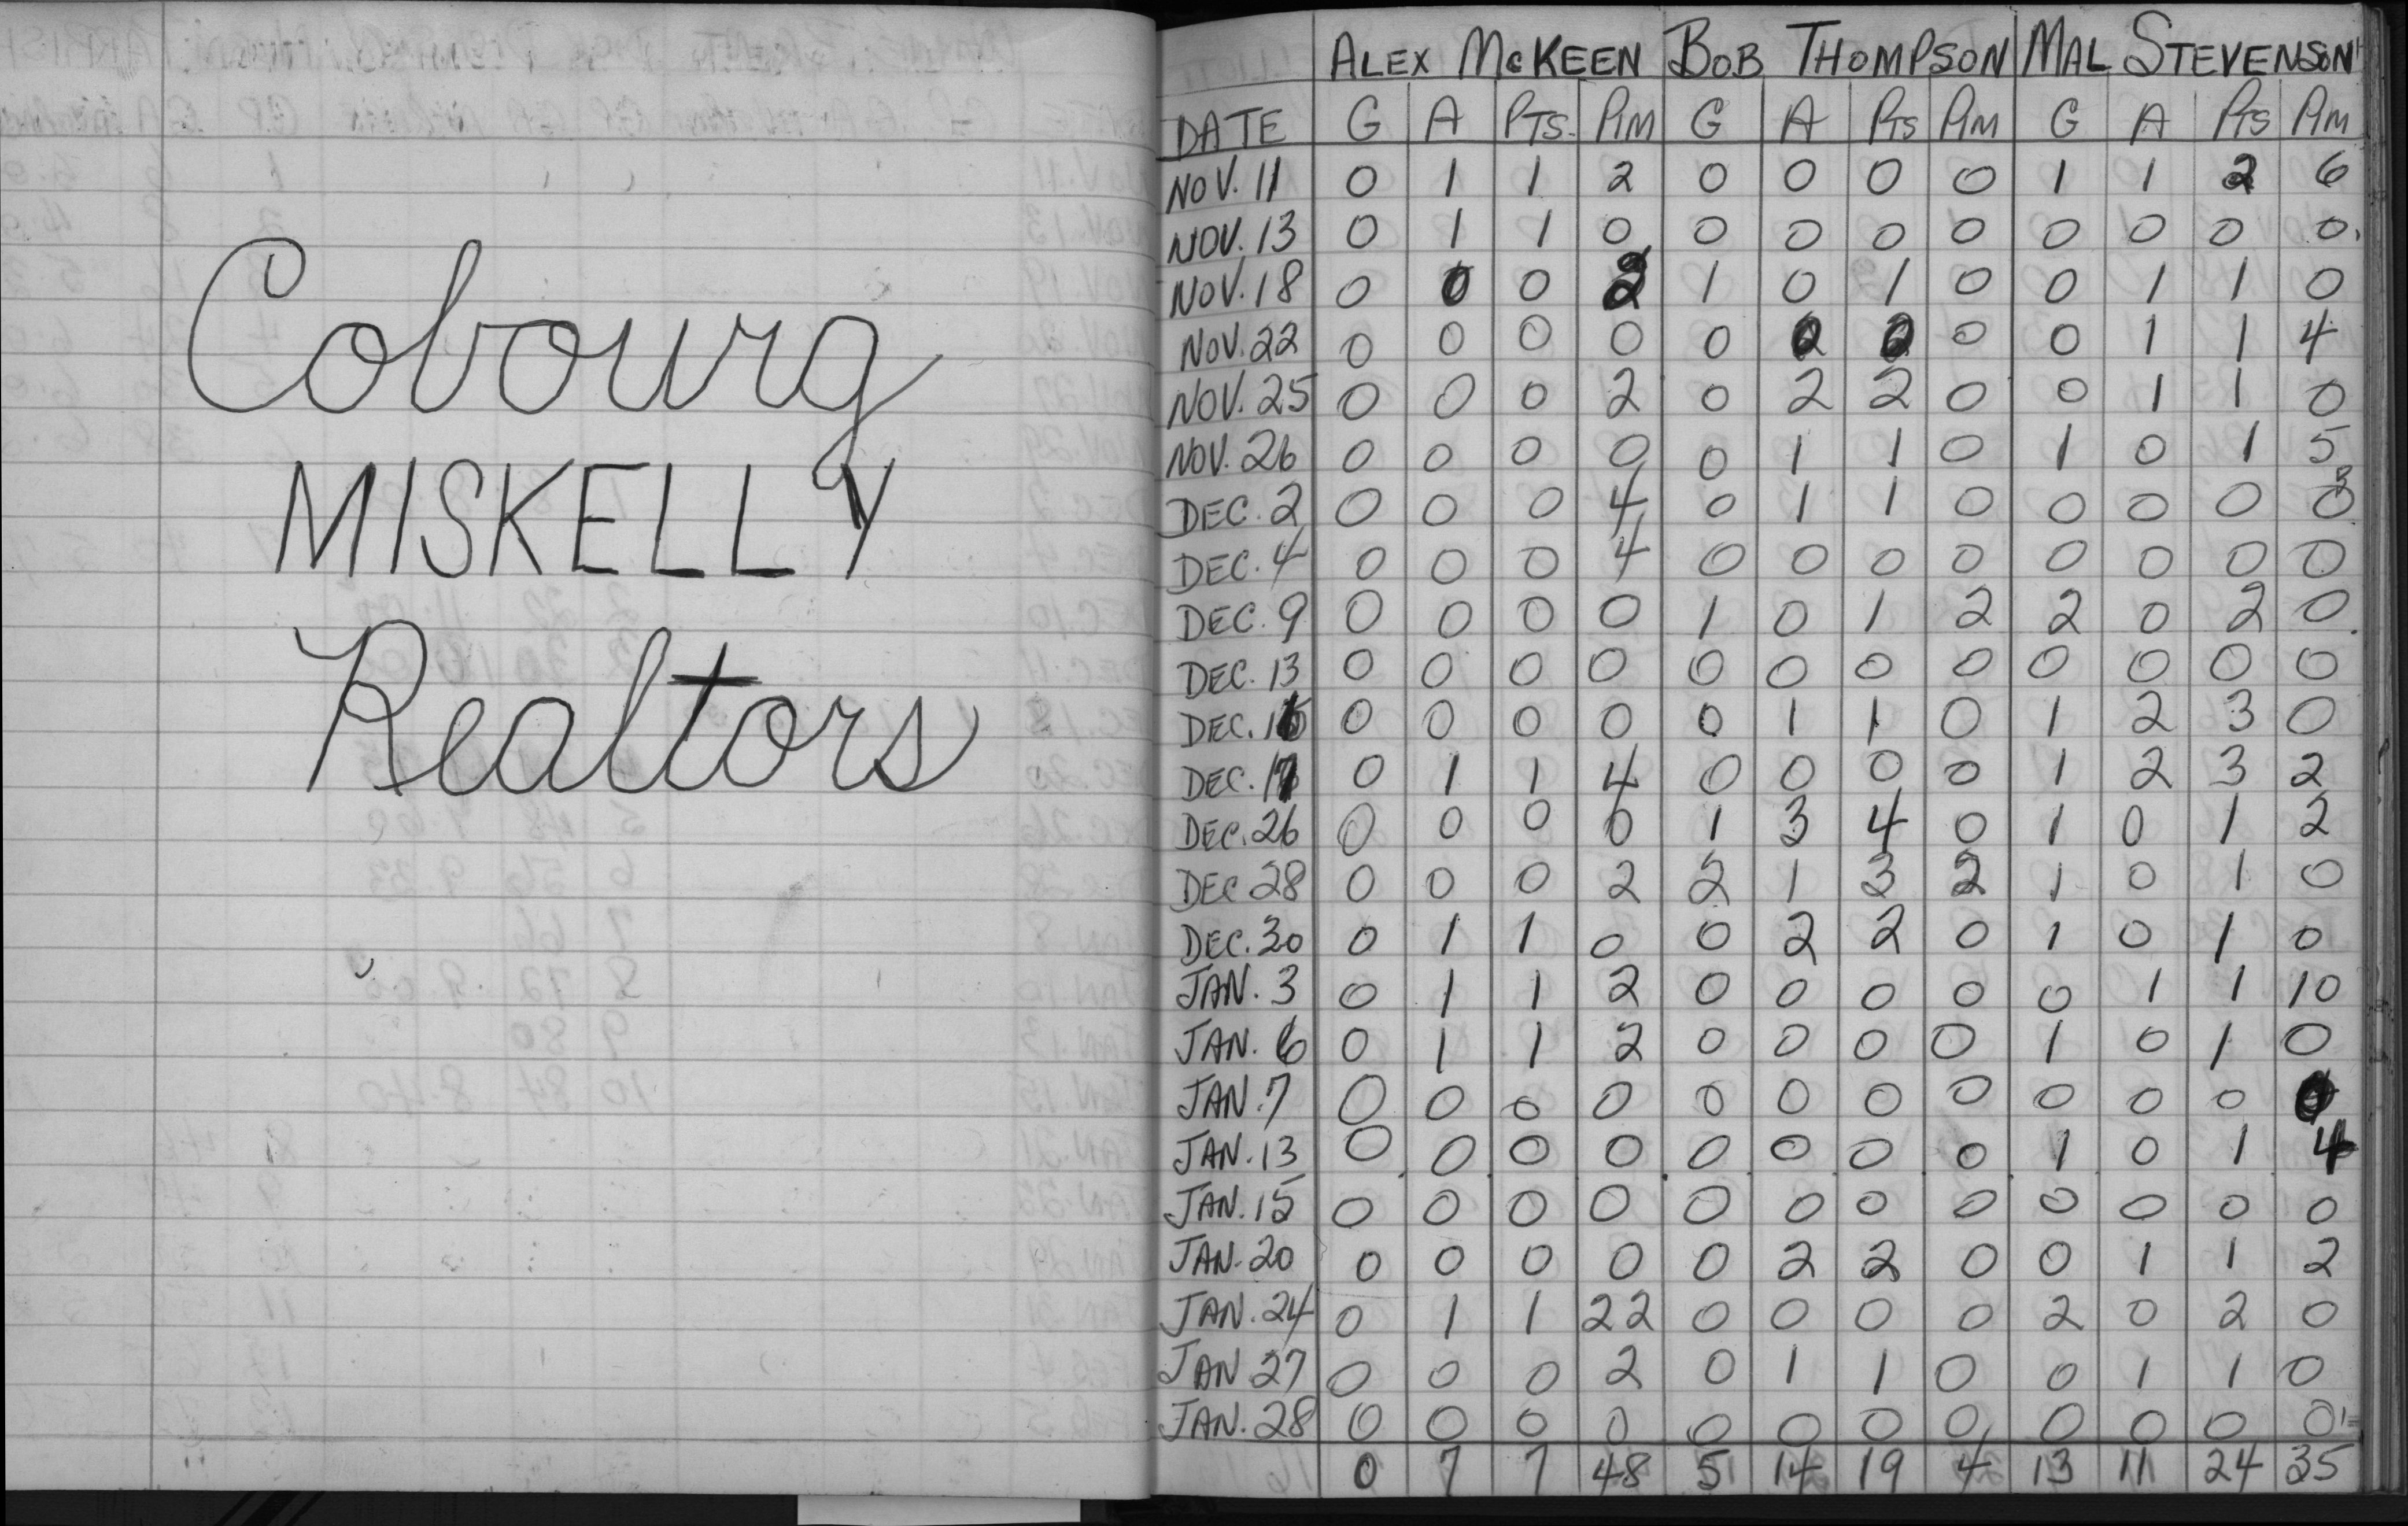 Cobourg
MISKELLY
Realtors
ALEX McKEEN BOB THOMPSON MAL STEVENSON
DATE G A PTS. PIM G A PTS PIM G A PTS PIM
NOV. 11 0 1 1 2 0 0 0 0 1 1 2 6
NOV. 13 0 1 1 0 0 0 0 0 0 0 0 0
NOV. 18 0 0 0 2 1 0 1 0 0 1 1 0
NOV. 22 0 0 0 0 0 0 0 0 0 1 1 4
NOV. 25 0 0 0 2 0 2 2 0 0 1 1 0
NOV. 26 0 0 0 0 0 1 1 0 1 0 1 5
DEC. 2 0 0 0 4 0 1 1 0 0 0 0
DEC. 4 0 0 0 4 0 0 0 0 0 0 0 0
DEC. 9 0 0 0 0 1 0 1 2 2 0 2 0
DEC. 13 0 0 0 0 0 0 0 0 0 0 0 0
DEC. 16 0 0 0 0 0 1 1 0 1 2 3 0
DEC. 17 0 1 1 4 0 0 0 0 1 2 3 2
DEC. 26 0 0 0 0 1 3 4 0 1 0 1 2
DEC 28 0 0 0 2 2 1 3 2 1 0 1 0
DEC. 30 0 1 1 0 0 2 2 0 1 0 1 0
JAN. 3 0 1 1 2 0 0 0 0 0 1 1 10
JAN. 6 0 1 1 2 0 0 0 0 1 0 1 0
JAN. 7 0 0 0 0 0 0 0 0 0 0 0 0
JAN. 13 0 0 0 0 0 0 0 0 1 0 1 4
JAN. 15 0 0 0 0 0 0 0 0 0 0 0 0
JAN. 20 0 0 0 0 0 2 2 0 0 1 1 2
JAN. 24 0 1 1 22 0 0 0 0 2 0 2 0
JAN 27 0 0 0 2 0 1 1 0 0 1 1 0
JAN. 28 0 0 0 0 0 0 0 0 0 0 0 0
0 7 7 48 5 14 19 4 13 11 24 35